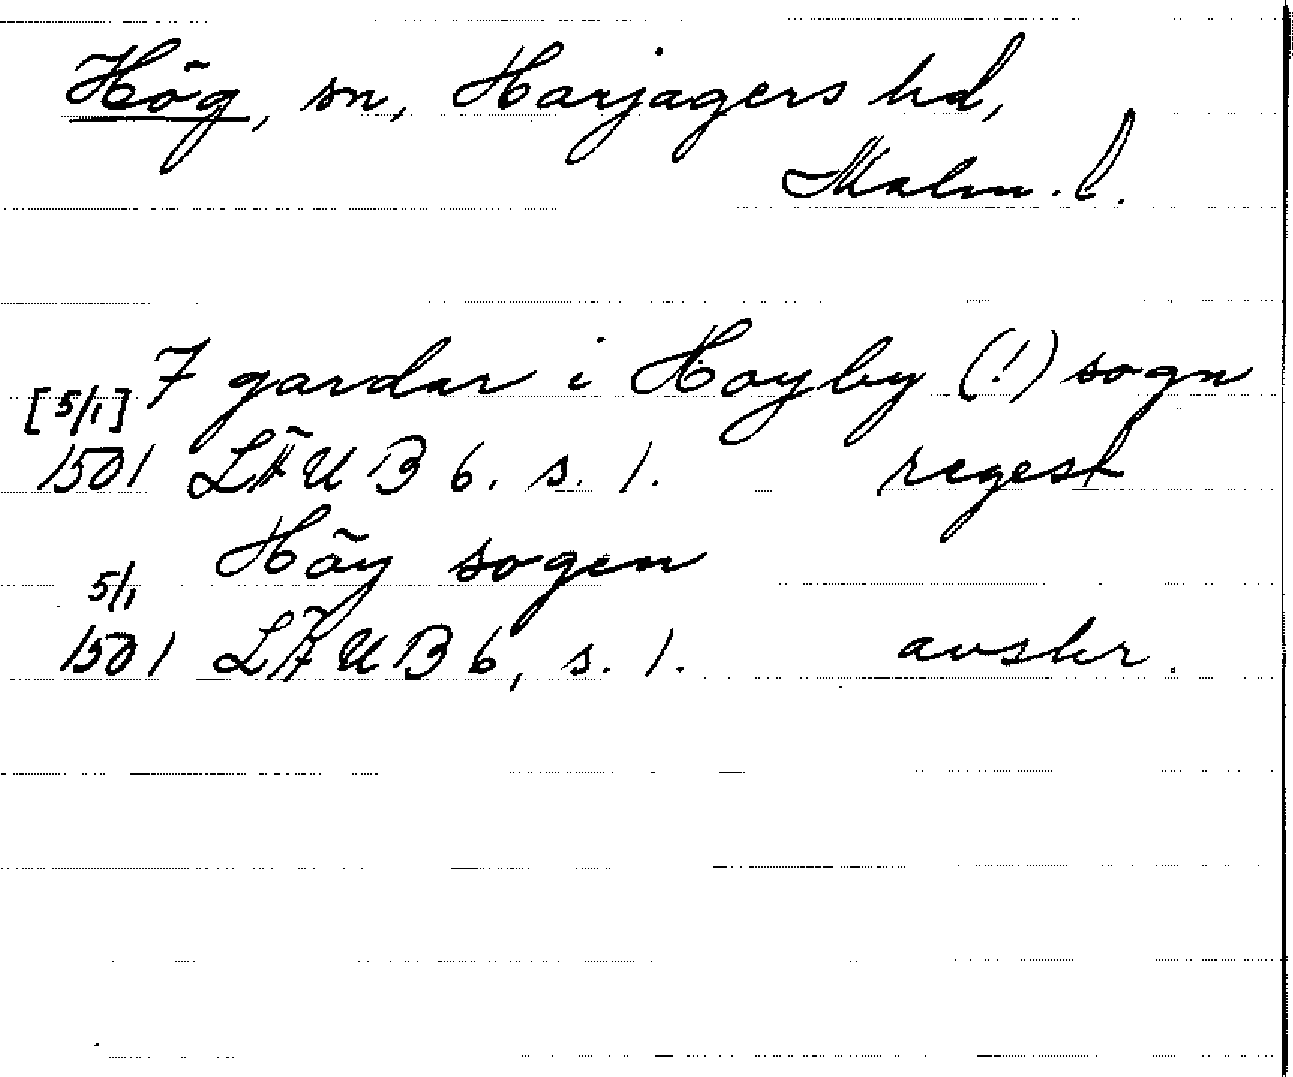 Hög, sn, Harjagers hd,
Malm. l.
7 gardar i Hoyby (!) sogn
[5/1]
1501 LÄUB 6. s. 1. regest
Höy sogen
5/1
1501 LÄUB 6, s. 1. avskr.